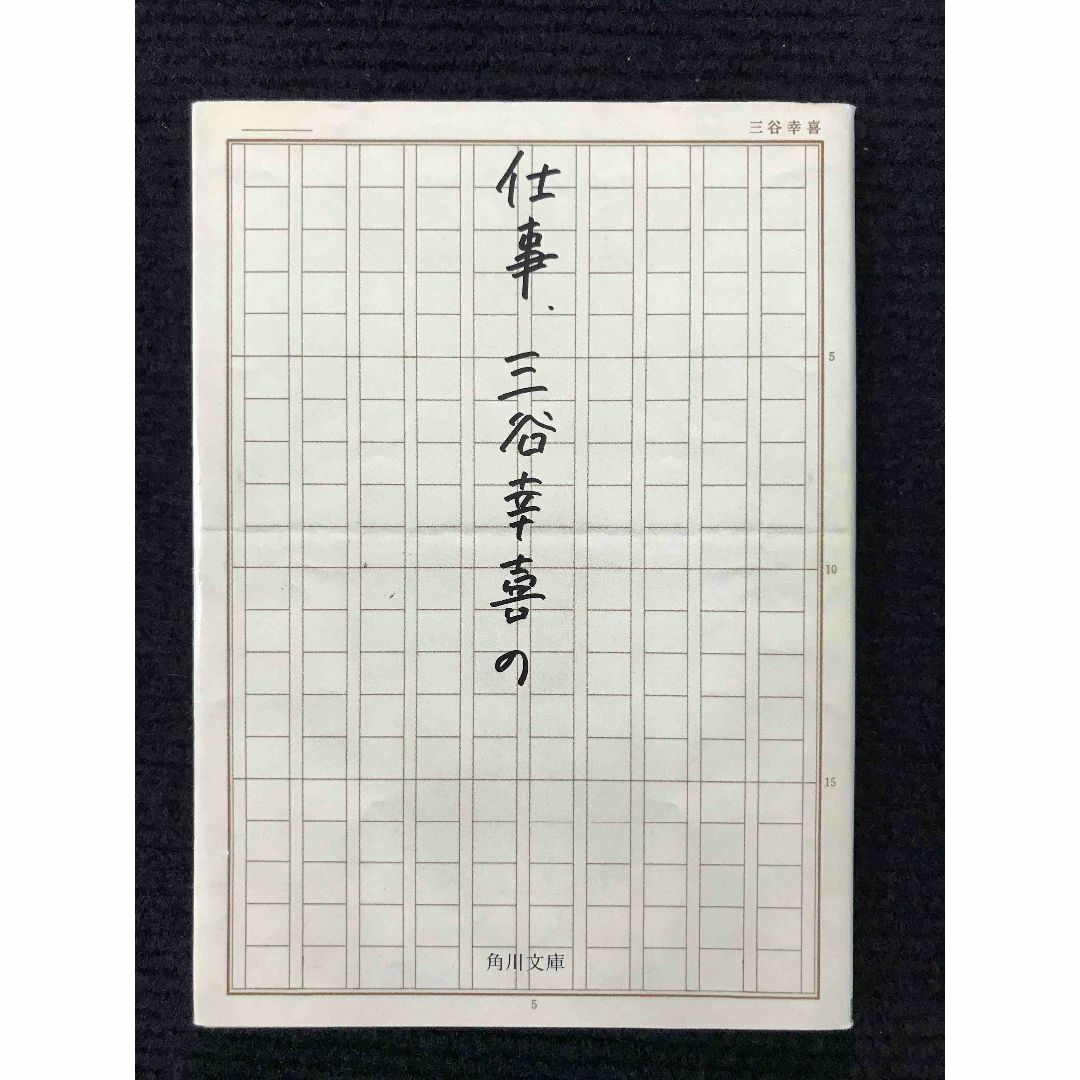 三谷幸喜
仕事、三谷幸喜の
5
10
15
角川文庫
5